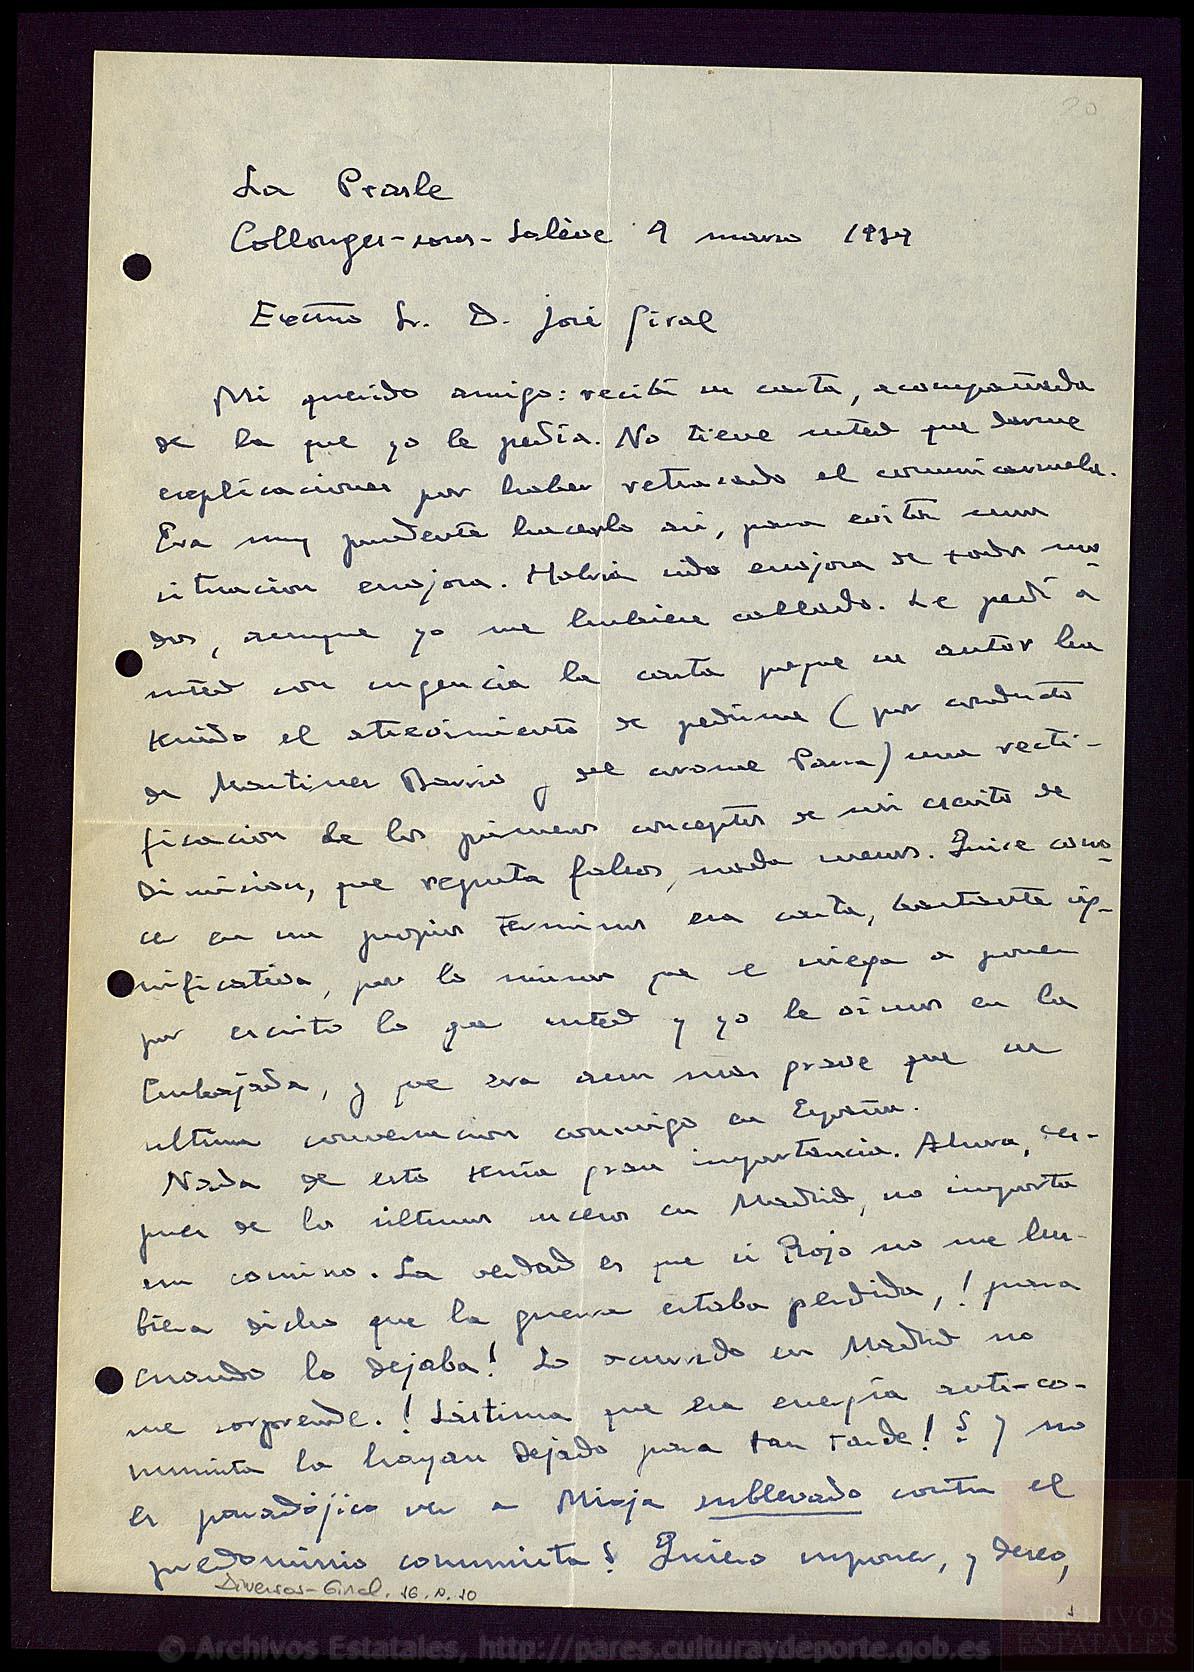 20
La Prasle
Collonges-sous-Salève 9 marzo 1939
Excmo Sr. D. José Giral
Mi querido amigo: recibí su carta, acompañada
de la que yo le pedía. No tiene usted que darme
explicaciones por haber retrasado el comunicármela.
Era muy prudente hacerlo así, para evitar una
situación enojosa. Habría sido enojosa de todos mo-
dos, aunque yo me hubiera callado. Le pedí a
usted con urgencia la carta porque su autor ha
tenido el atrevimiento de pedirme (por conducto
de Martínez Barrio y del coronel Parra) una recti-
ficación de los primeros conceptos de mi escrito de
dimisión, que reputa falsos, nada menos. Quise cono-
cer en sus propios términos esa carta, bastante sig-
nificativa, por lo mismo que se niega a poner
por escrito lo que usted y yo le oímos en la
Embajada, y que era aun más grave que su
última conversación conmigo en España.
Nada de esto tenía gran importancia. Ahora, des-
pués de los últimos sucesos en Madrid, no importa
un comino. La verdad es que si Rojo no me hu-
biera dicho que la guerra estaba perdida, ! para
cuando lo dejaba! Lo ocurrido en Madrid no
me sorprende. ! Lástima que esa energía anti-co-
munista la hayan dejado para tan tarde! ¿ Y no
es paradójico ver a Miaja sublevado contra el
predominio comunista? Quiero suponer, y deseo,
Diversos-Giral. 16. N. 10
1
© Archivos Estatales, http://pares.culturaydeporte.gob.es
AE
ARCHIVOS
ESTATALES